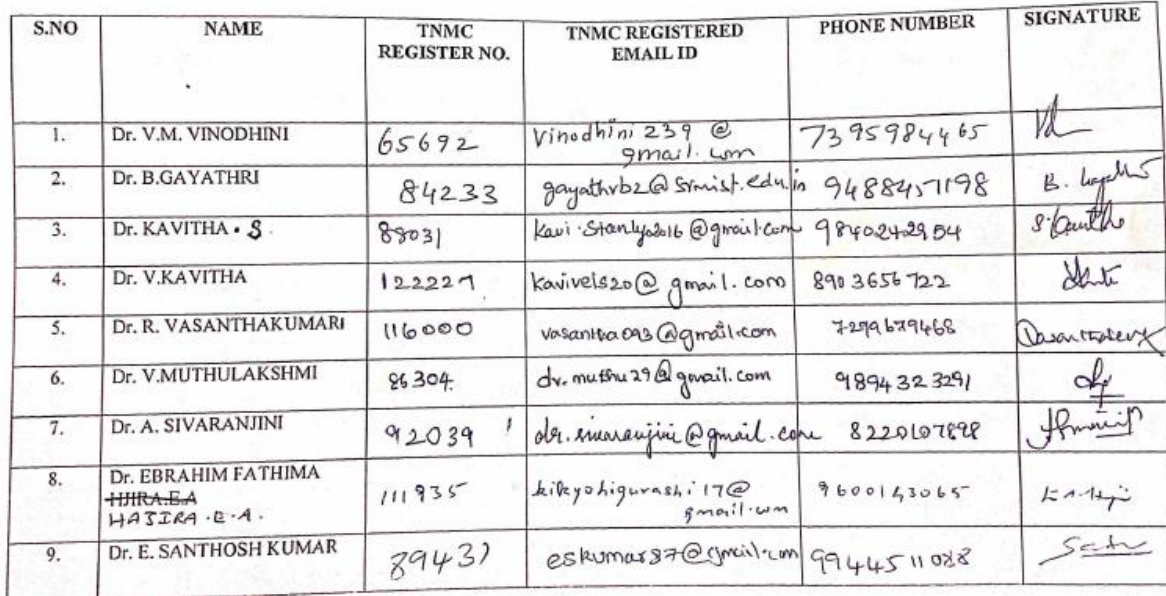 S.NO NAME TNMC REGISTER NO. TNMC REGISTERED EMAIL ID PHONE NUMBER SIGNATURE
1. Dr. V.M. VINODHINI 65692 Vinodhini 239 @ gmail.com 7395984465
2. Dr. B.GAYATHRI 84233 gayathrb2@srmist.edu.in 9488457198
3. Dr. KAVITHA . S 88031 kavi.stanly2016@gmail.com 9840242954
4. Dr. V.KAVITHA 122227 kavivels20@gmail.com 8903656722
5. Dr. R. VASANTHAKUMARI 116000 vasantha093@gmail.com 7299679468
6. Dr. V.MUTHULAKSHMI 86304. dr.muthu29@gmail.com 9894323291
7. Dr. A. SIVARANJINI 92039 dr.sivaranjini@gmail.com 8220107898
8. Dr. EBRAHIM FATHIMA 111935 kikyohigurashi17@ 9600143065
HJIRA.E.A gmail.com
HAJIRA.E.A.
9. Dr. E. SANTHOSH KUMAR 89431 eskumar87@gmail.com 9944511088